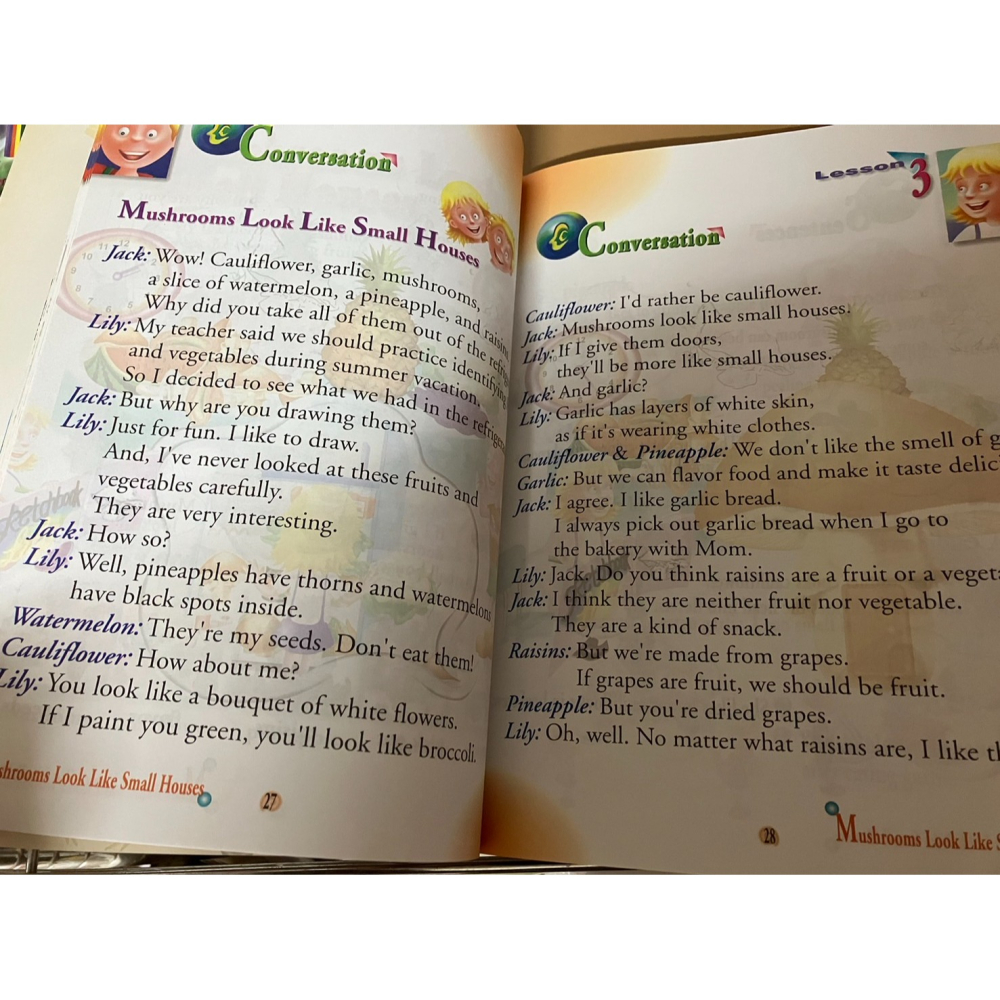 Conversation
Mushrooms Look Like Small Houses
Jack: Wow! Cauliflower, garlic, mushrooms,
a slice of watermelon, a pineapple, and
Why did you take all of them out of the
Lily: My teacher said we should practice identifying
and vegetables during summer vacation,
So I decided to see what we had in the
Jack: But why are you drawing them?
Lily: Just for fun. I like to draw.
And, I've never looked at these fruits and
vegetables carefully.
They are very interesting.
Jack: How so?
Lily: Well, pineapples have thorns and watermelons
have black spots inside.
Watermelon: They're my seeds. Don't eat them!
Cauliflower: How about me?
Lily: You look like a bouquet of white flowers.
If I paint you green, you'll look like broccoli.
Look Like Small Houses
27
Lesson 3
Conversation
Cauliflower: I'd rather be cauliflower.
Jack: Mushrooms look like small houses.
Lily: If I give them doors,
they'll be more like small houses.
Jack: And garlic?
Lily: Garlic has layers of white skin,
as if it's wearing white clothes.
Cauliflower & Pineapple: We don't like the smell of
Garlic: But we can flavor food and make it taste
Jack: I agree. I like garlic bread.
I always pick out garlic bread when I go to
the bakery with Mom.
Lily: Jack. Do you think raisins are a fruit or a
Jack: I think they are neither fruit nor vegetable.
They are a kind of snack.
Raisins: But we're made from grapes.
If grapes are fruit, we should be fruit.
Pineapple: But you're dried grapes.
Lily: Oh, well. No matter what raisins are, I like
28
Mushrooms Look Like